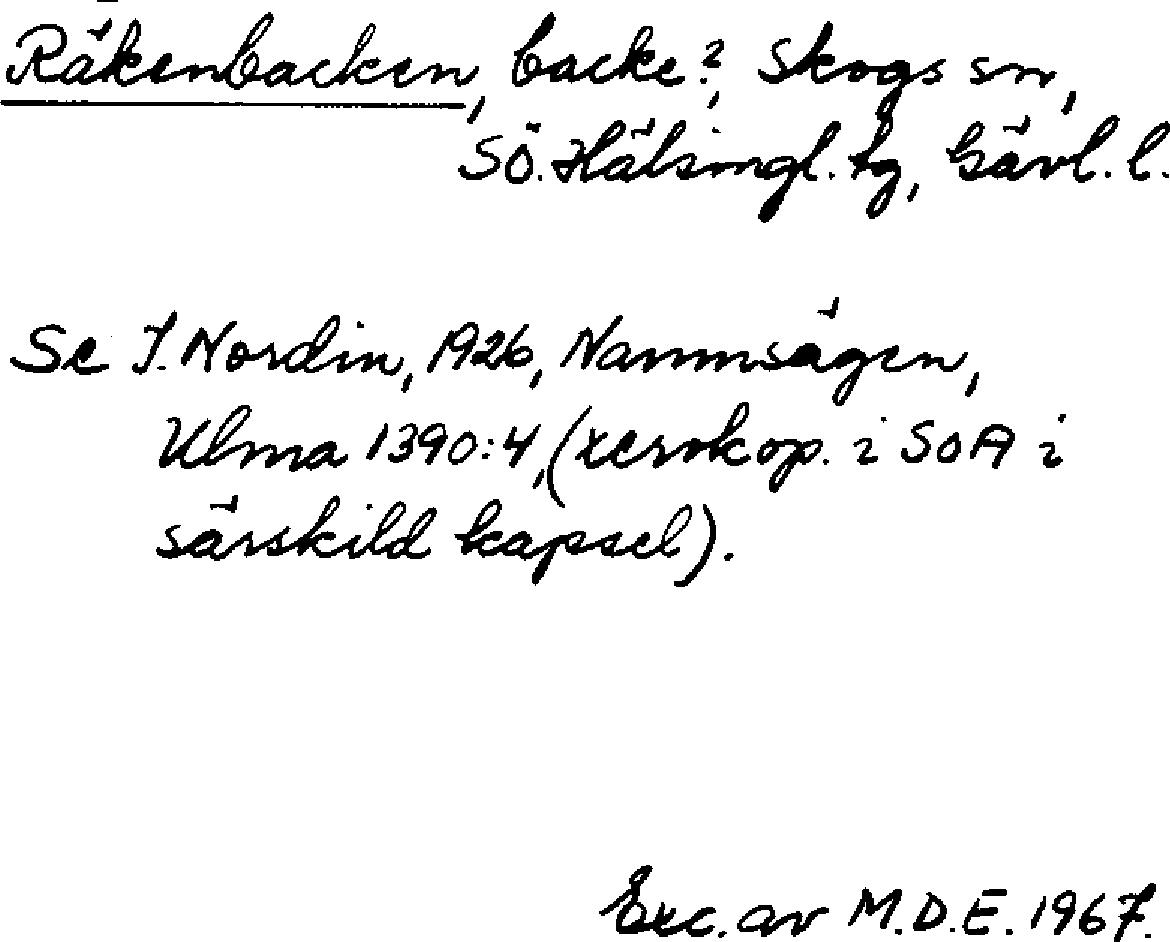 Räkenbacken, backe?, Skogs sn,
SÖ. Hälsingl. tg, Gävl. l.
Se J. Nordin, 1926, Namnsägen,
Ulma 1390:4, (xerokop. i SOA i
särskild kapsel).
Exc. av M.D.E. 1967.